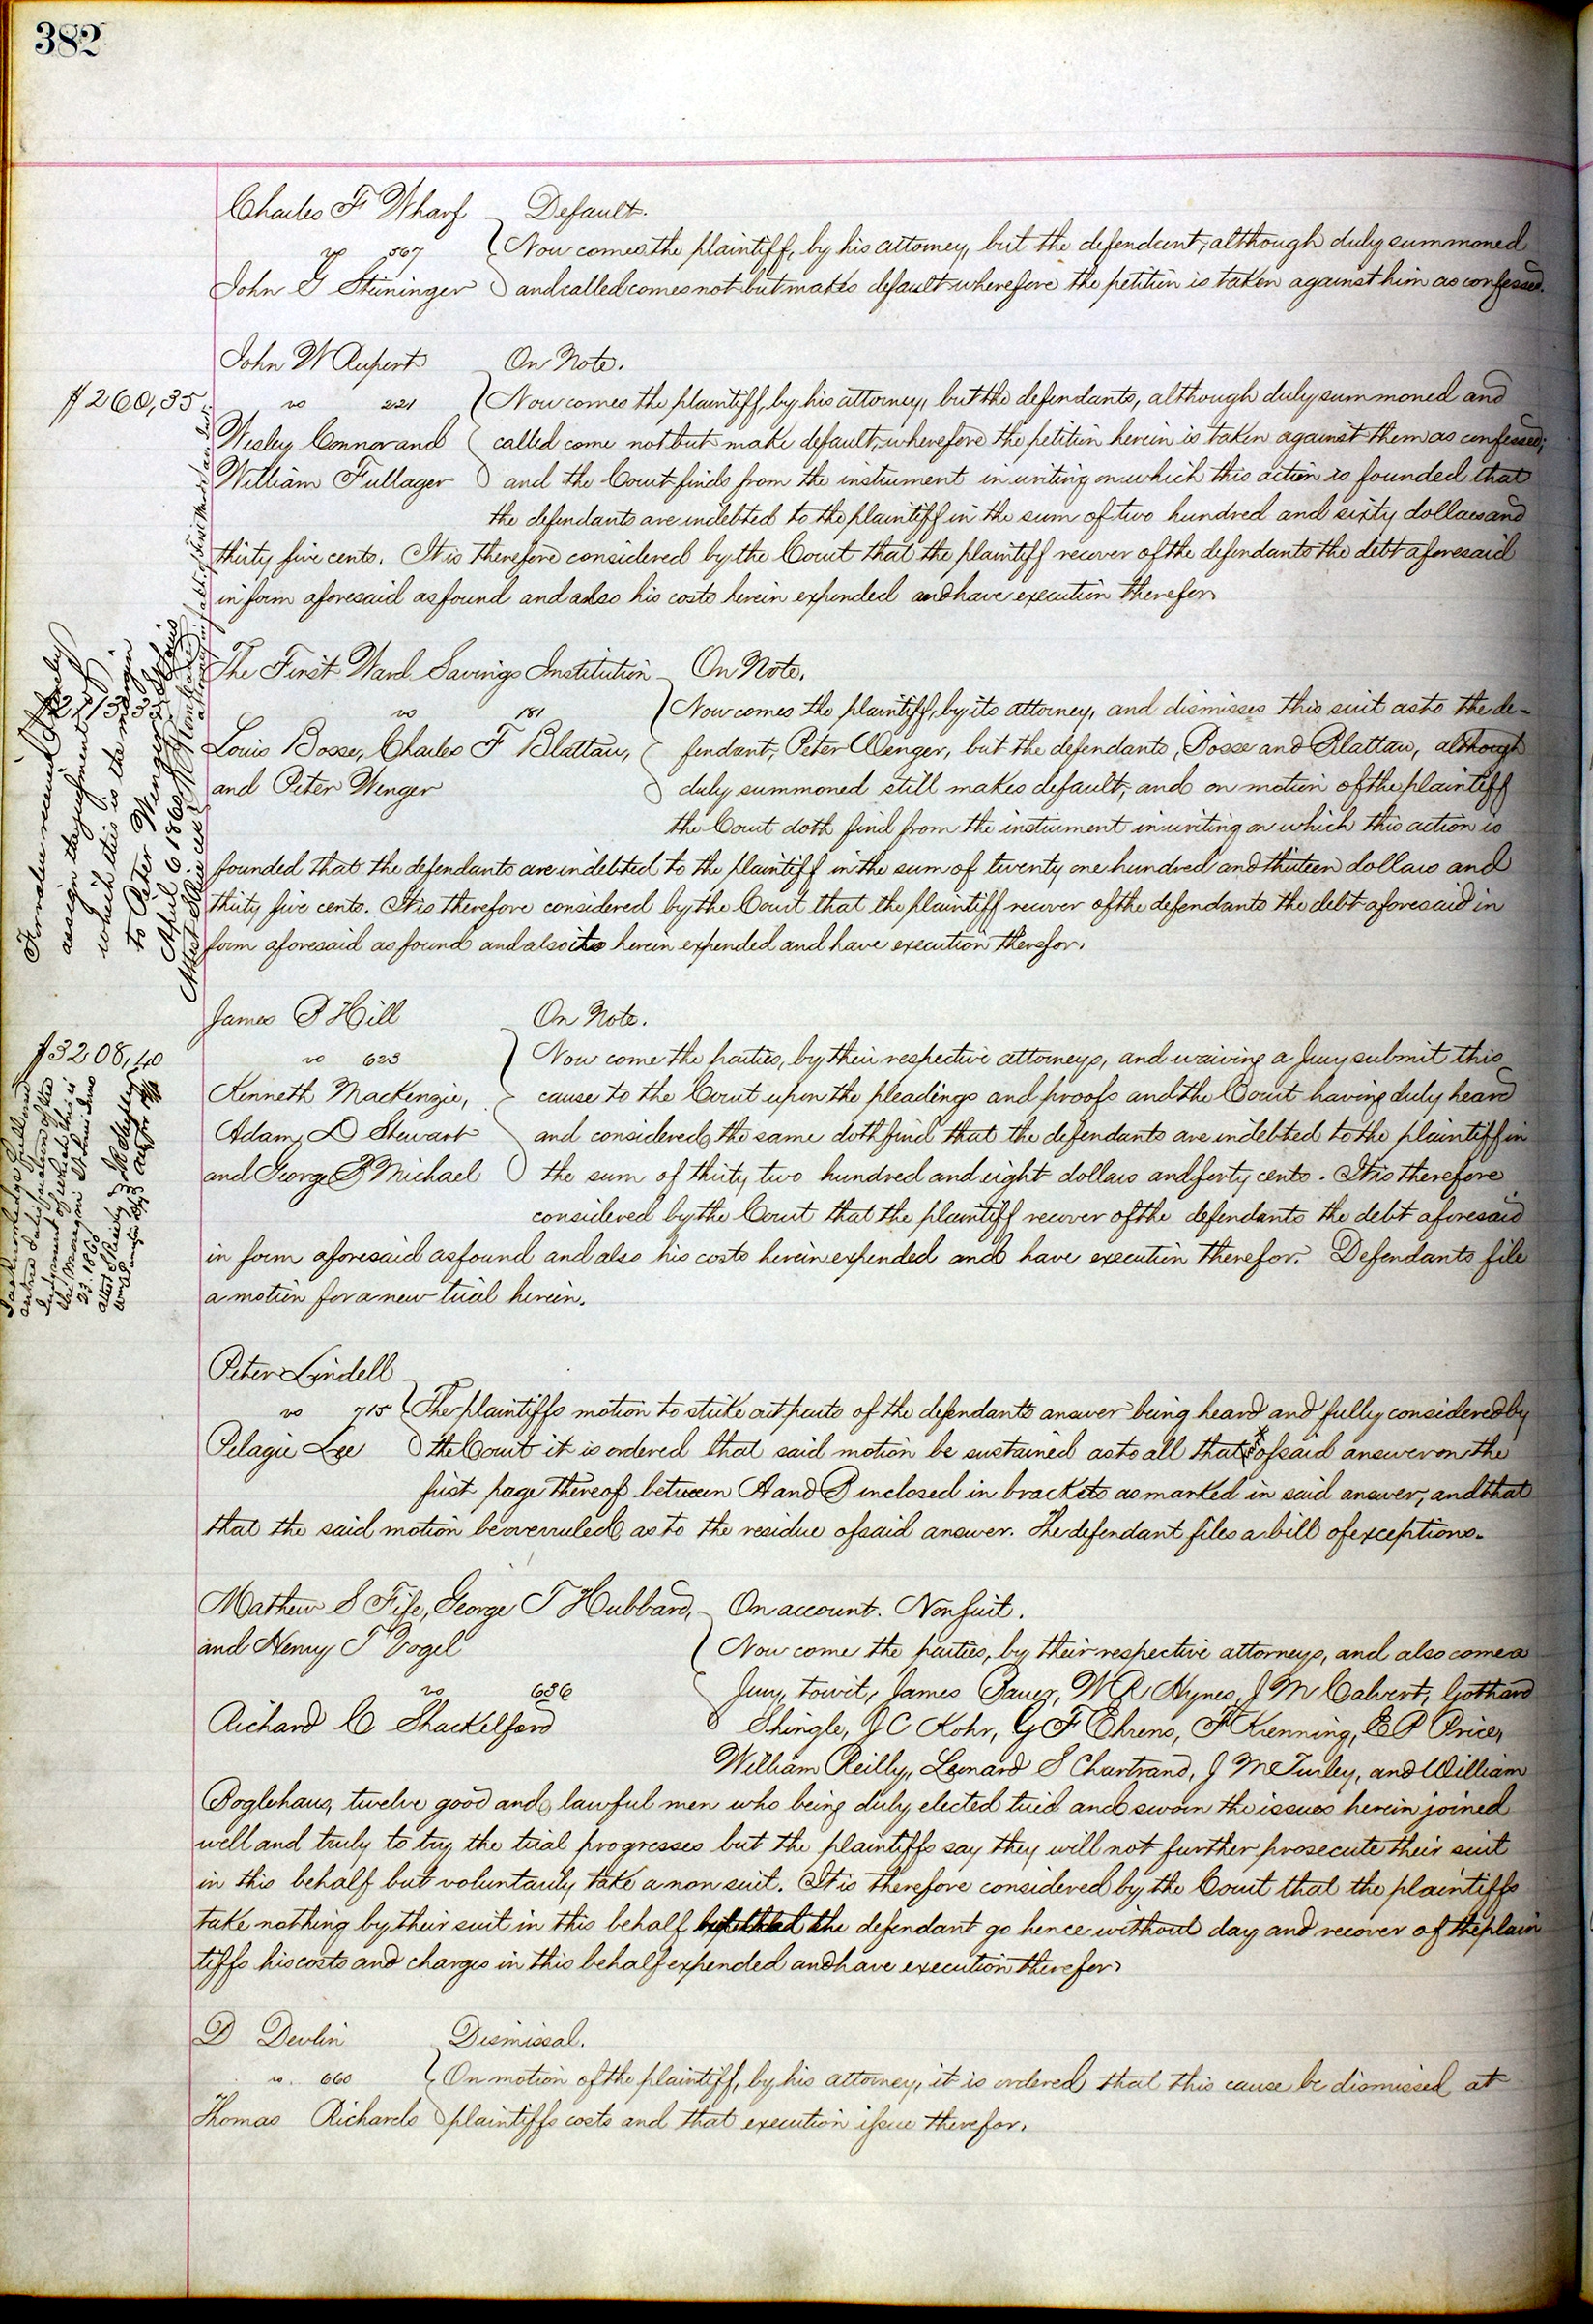 382
Charles F Wharf Default.
vs 567 Now comes the plaintiff, by his attorney, but the defendant, although duly summoned
John G Steininger and called comes not but makes default wherefore the petition is taken against him as confessed.
John W Rupert On Note.
$260,35 vs 221 Now comes the plaintiff, by his attorney, but the defendants, although duly summoned and
Wesley Connor and called come not but make default, wherefore the petition herein is taken against them as confessed;
William Fullager and the Court finds from the instrument in writing on which this action is founded that
the defendants are indebted to the plaintiff in the sum of two hundred and sixty dollars and
thirty five cents. It is therefore considered by the Court that the plaintiff recover of the defendants the debt aforesaid
in form aforesaid as found and also his costs herein expended and have execution therefor
The First Ward Savings Institution On Note.
$2113,35 vs 181 Now comes the plaintiff, by its attorney, and dismisses this suit as to the de-
Louis Bosse, Charles F Blattau, fendant, Peter Wenger, but the defendants, Bosse and Blattau, although
and Peter Wenger duly summoned still makes default, and on motion of the plaintiff
the Court doth find from the instrument in writing on which this action is
founded that the defendants are indebted to the plaintiff in the sum of twenty one hundred and thirteen dollars and
thirty five cents. It is therefore considered by the Court that the plaintiff recover of the defendants the debt aforesaid in
form aforesaid as found and also its herein expended and have execution therefor.
For value received I hereby
assign the judgment of
which this is the margin
to Peter Wenger St Louis
April 6 1860
James B Hill On Note.
$3208,40 vs 623 Now come the parties, by their respective attorneys, and waiving a Jury submit this
Kenneth Mackenzie, cause to the Court upon the pleadings and proofs and the Court having duly heard
Adam D Stewart and considered the same doth find that the defendants are indebted to the plaintiff in
and George B Michael the sum of thirty two hundred and eight dollars and forty cents. It is therefore
considered by the Court that the plaintiff recover of the defendants the debt aforesaid
in form aforesaid as found and also his costs herein expended and have execution therefor. Defendants file
a motion for a new trial herein.
I acknowledge full and
entire satisfaction of the
Judgment of which this is
the Margin St Louis
23. 1860
Peter Lindell
vs 715 The plaintiffs motion to strike out parts of the defendants answer being heard and fully considered by
Pelagie Lee the Court it is ordered that said motion be sustained as to all that of said answer on the
first page thereof between A and B inclosed in brackets as marked in said answer, and that
that the said motion be overruled as to the residue of said answer. The defendant files a bill of exceptions.
Mathew S Fife, George T Hubbard, On account. Nonsuit.
and Henry T Vogel Now come the parties, by their respective attorneys, and also come a
vs 636 Jury, towit, James Bauer, W R Hynes, J M Calvert, Gothard
Richard C Shackelford Shingle, J C Kohr, G F Ehrens, F Krenning, E P Price,
William Reilly, Leonard S Chartrand, J McTurley, and William
Poglehaus, twelve good and lawful men who being duly elected tried and sworn the issues herein joined
well and truly to try the trial progresses but the plaintiffs say they will not further prosecute their suit
in this behalf but voluntarily take a non suit. It is therefore considered by the Court that the plaintiffs
take nothing by their suit in this behalf the defendant go hence without day and recover of the plain
tiffs his costs and charges in this behalf expended and have execution therefor
D Devlin Dismissal.
vs. 660 On motion of the plaintiff, by his attorney, it is ordered that this cause be dismissed at
Thomas Richards plaintiffs costs and that execution issue therefor.